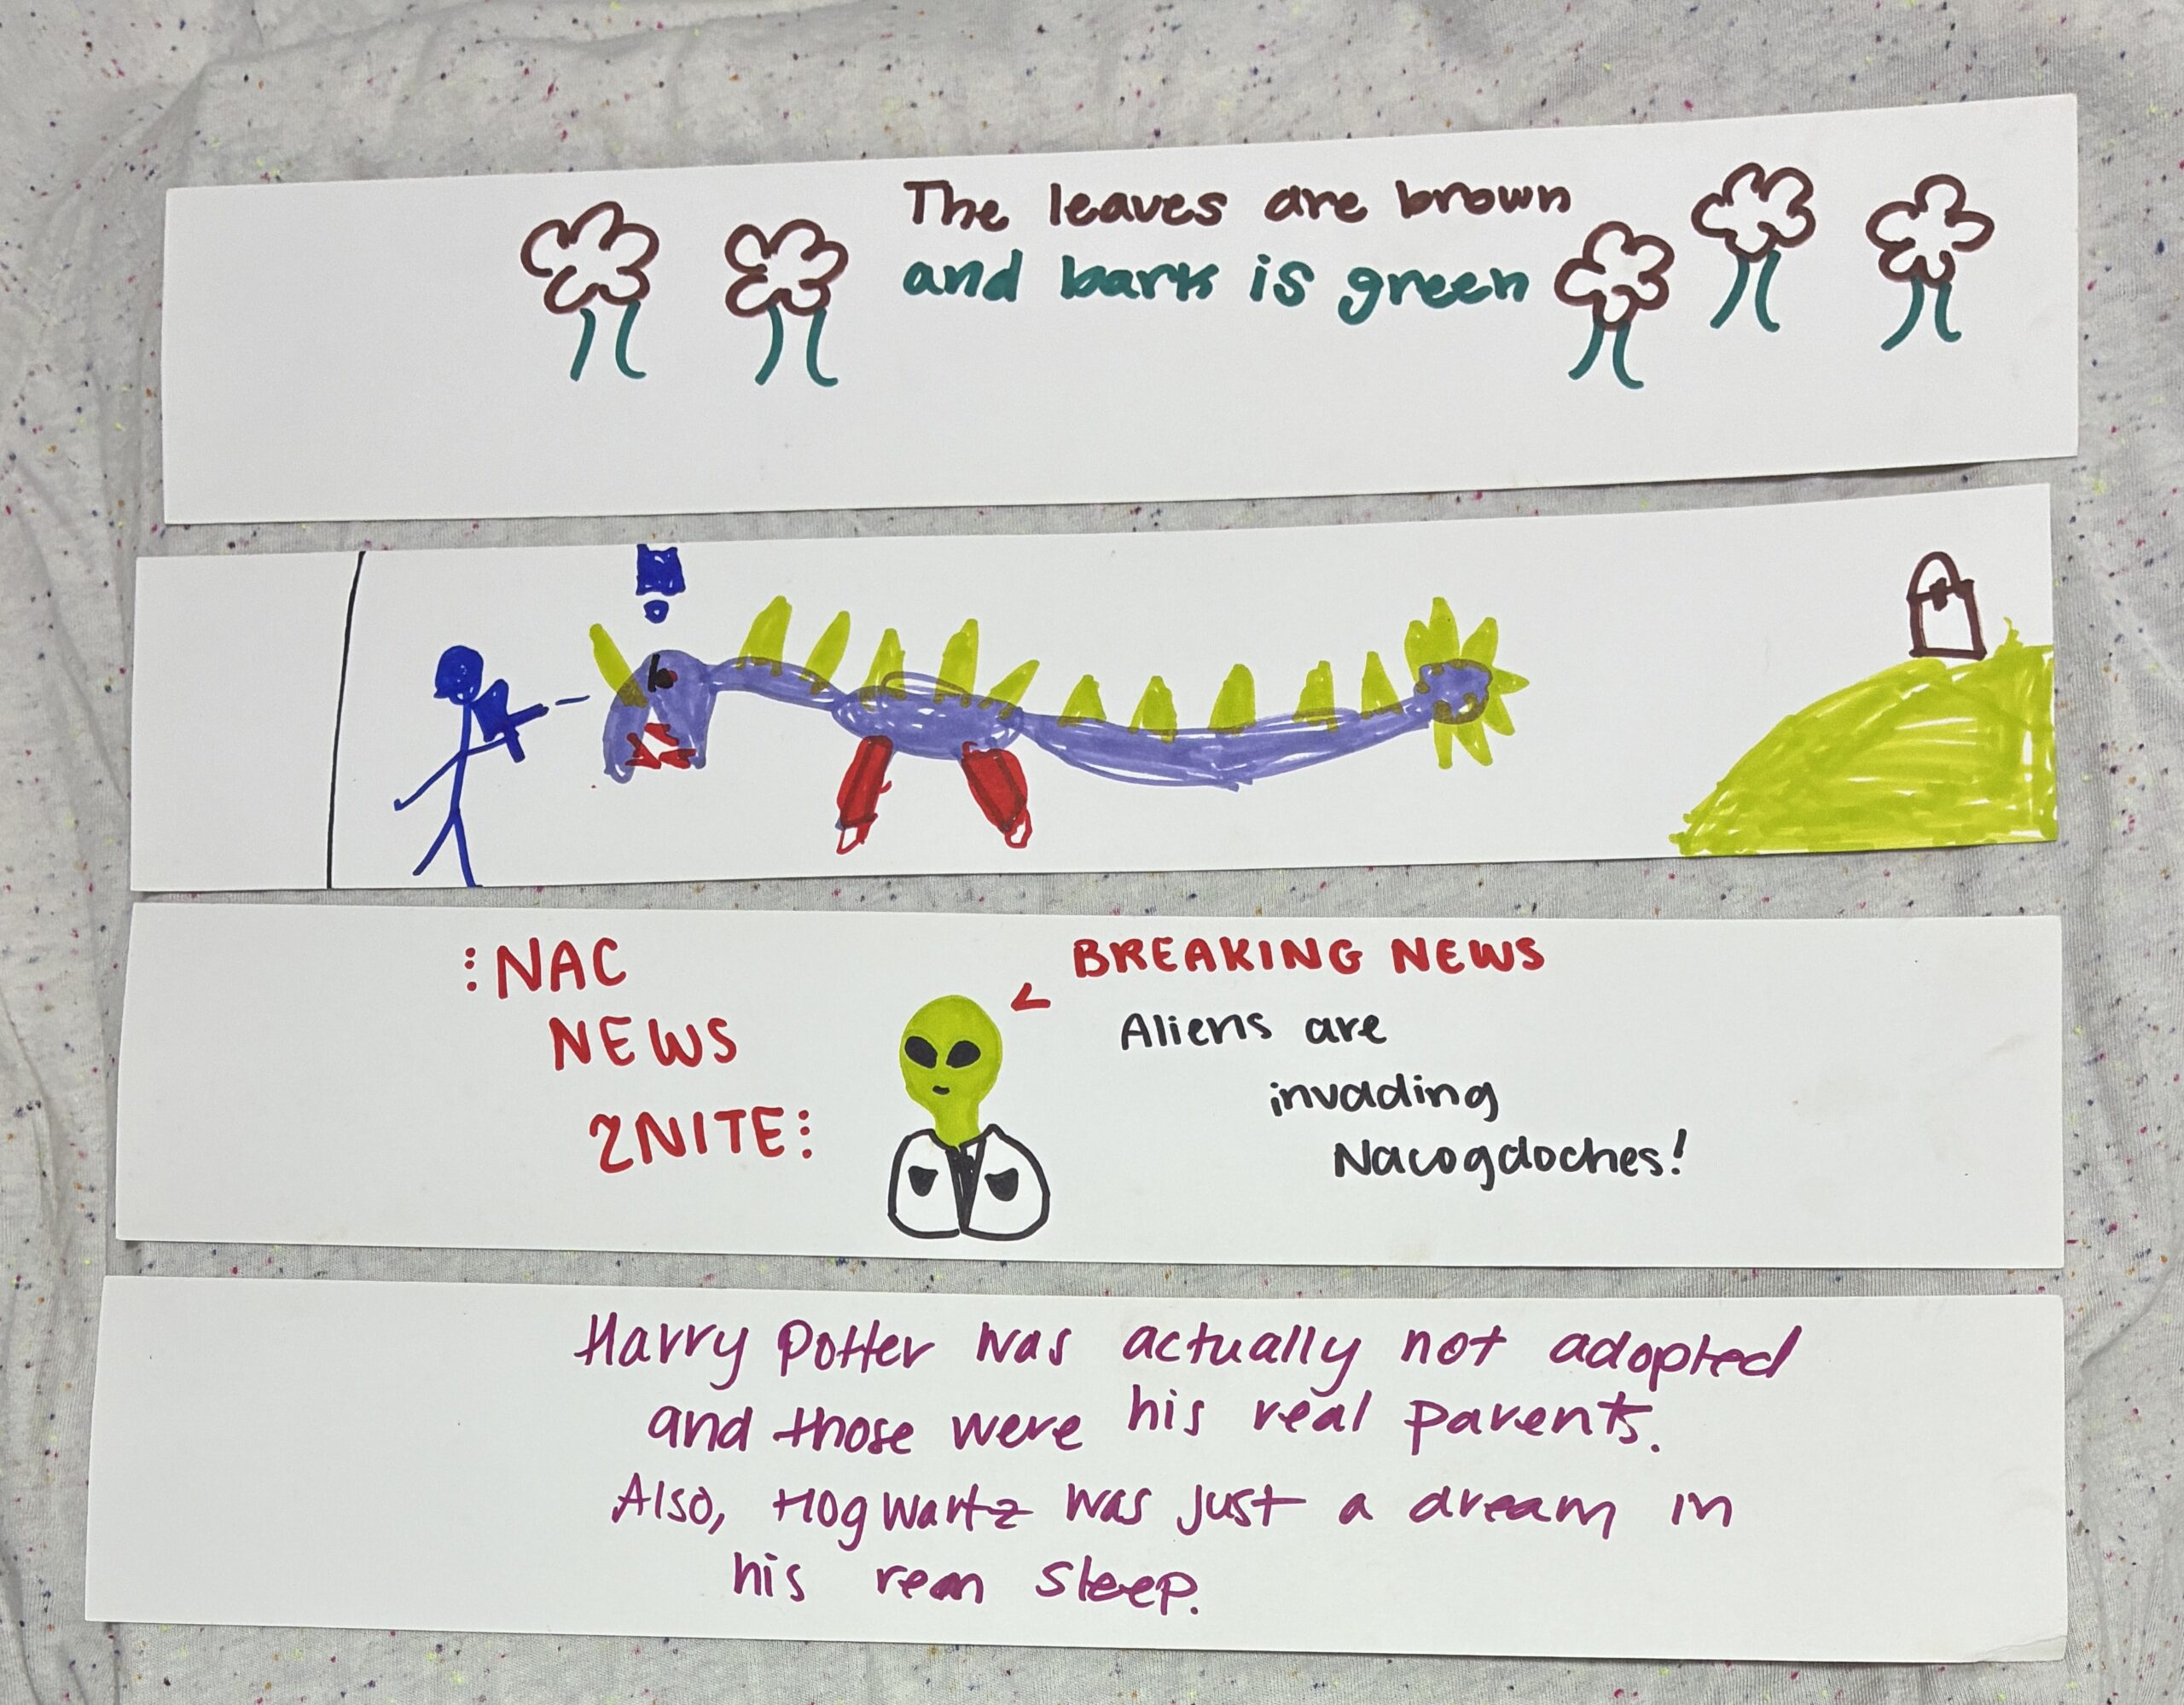 The leaves are brown
and bark is green
:NAC
NEWS
2NITE:
BREAKING NEWS
Aliens are
invading
Nacogdoches!
Harry Potter was actually not adopted
and those were his real parents.
Also, HogWartz was just a dream in
his rem sleep.